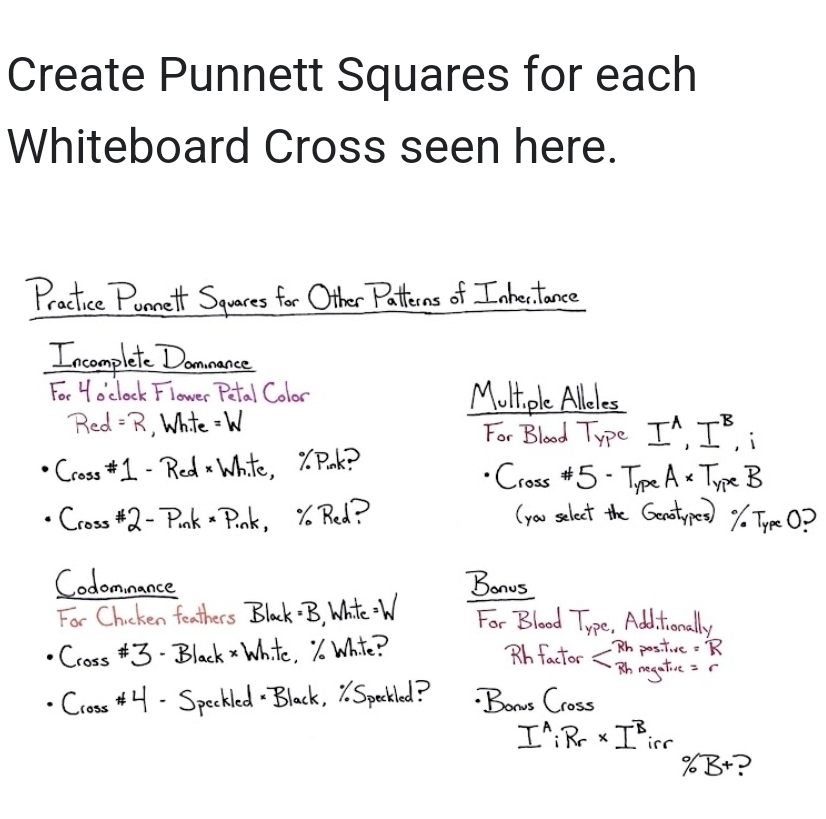 Create Punnett Squares for each
Whiteboard Cross seen here.
Practice Punnett Squares for Other Patterns of Inheritance
Incomplete Dominance
For 4 o'clock Flower Petal Color
Red = R, White = W
• Cross #1 - Red × White, % Pink?
• Cross #2 - Pink × Pink, % Red?
Codominance
For Chicken feathers Black = B, White = W
• Cross #3 - Black × White, % White?
• Cross #4 - Speckled × Black, % Speckled?
Multiple Alleles
For Blood Type Iᴬ, Iᴮ, i
• Cross #5 - Type A × Type B
(you select the Genotypes) % Type O?
Bonus
For Blood Type, Additionally
Rh factor < Rh positive = R
Rh negative = r
• Bonus Cross
IᴬiRr × Iᴮirr
% B+?